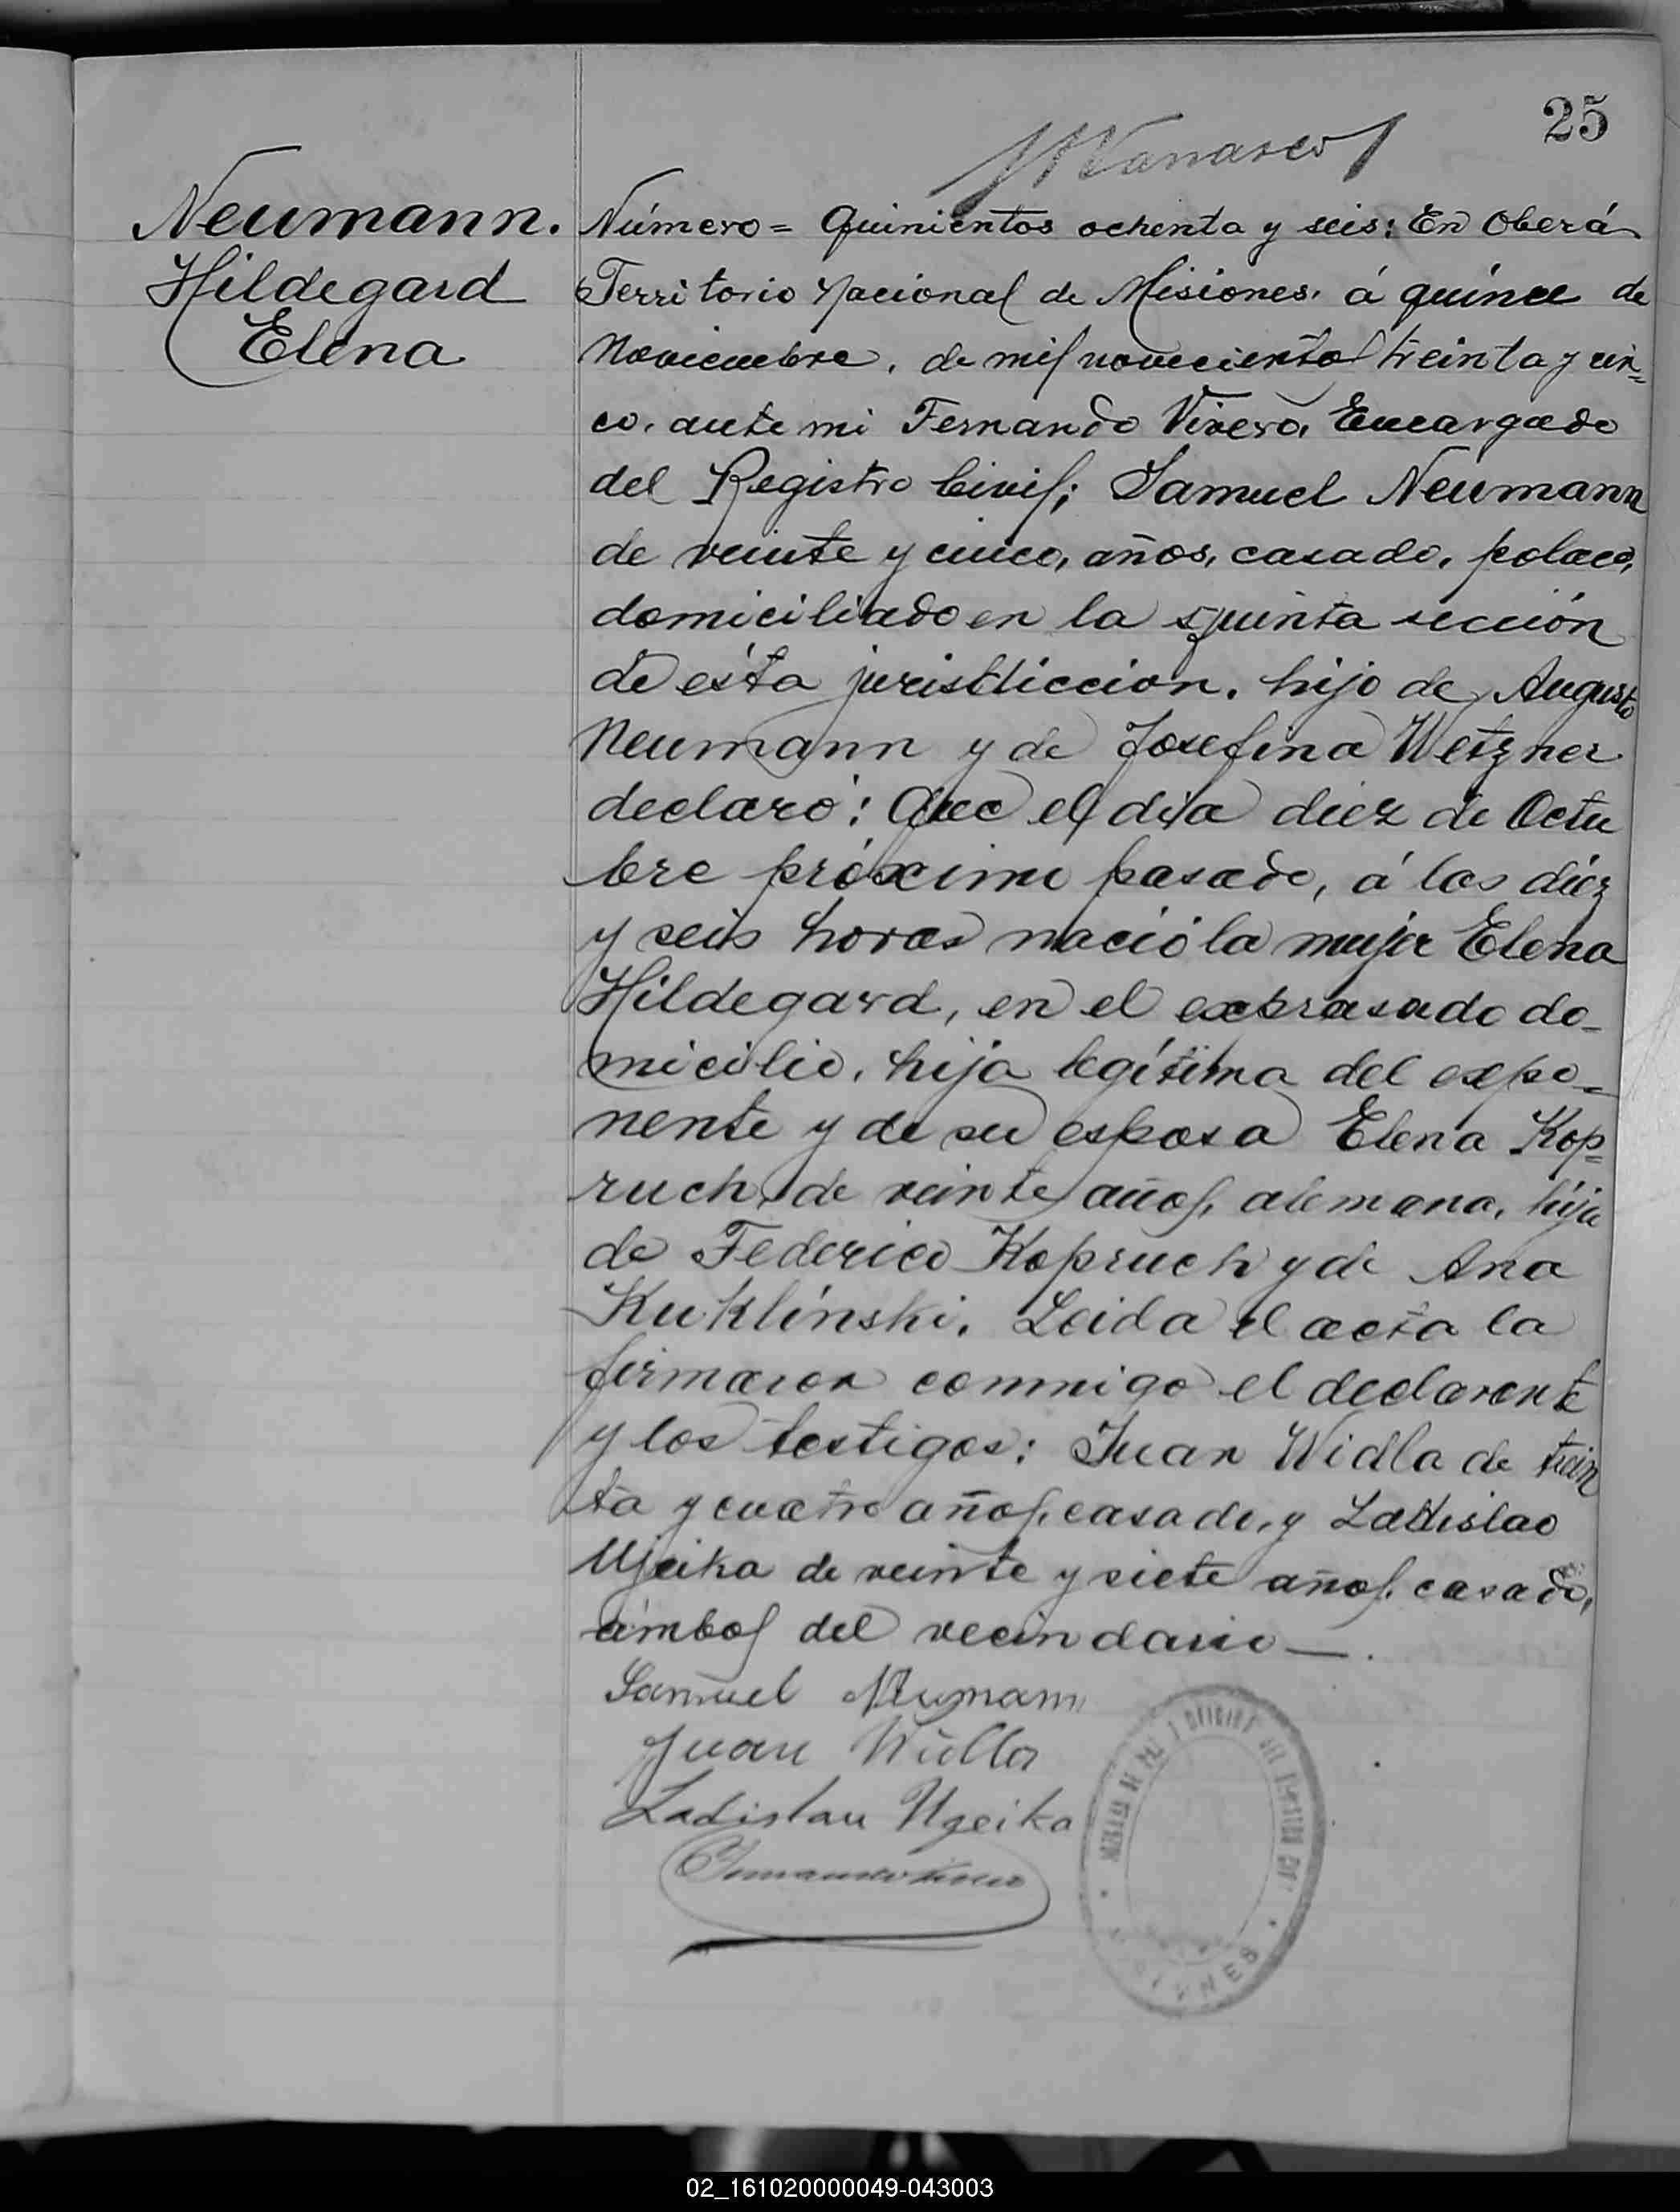 25
Neumann.
Hildegard
Elena
Número = Quinientos ochenta y seis: En Oberá
Territorio Nacional de Misiones, á quince de
Noviembre, de mil novecientos treinta y cin=
co, ante mi Fernando Vivero, Encargado
del Registro Civil; Samuel Neumann
de veinte y cinco, años, casado, polaco,
domiciliado en la quinta sección
de ésta jurisdiccion, hijo de Augusto
Neumann y de Josefina Wetzner
declaró: Que el dia diez de Octu
bre próximo pasado, á las diéz
y seis horas nació la mujer Elena
Hildegard, en el expresado do-
micilio, hija legítima del expo=
nente y de su esposa Elena Kop=
ruch, de veinte años, alemana, hija
de Federico Kopruch y de Ana
Kuklínski. Leida el acta la
firmaron conmigo el declarante
y los testigos: Juan Widla de trein
ta y cuatro años, casado, y Ladislao
Ujeika de veinte y siete años, casado,
ámbos del vecindario —.
Samuel Neumann
Juan
Ladislau
02_161020000049-043003